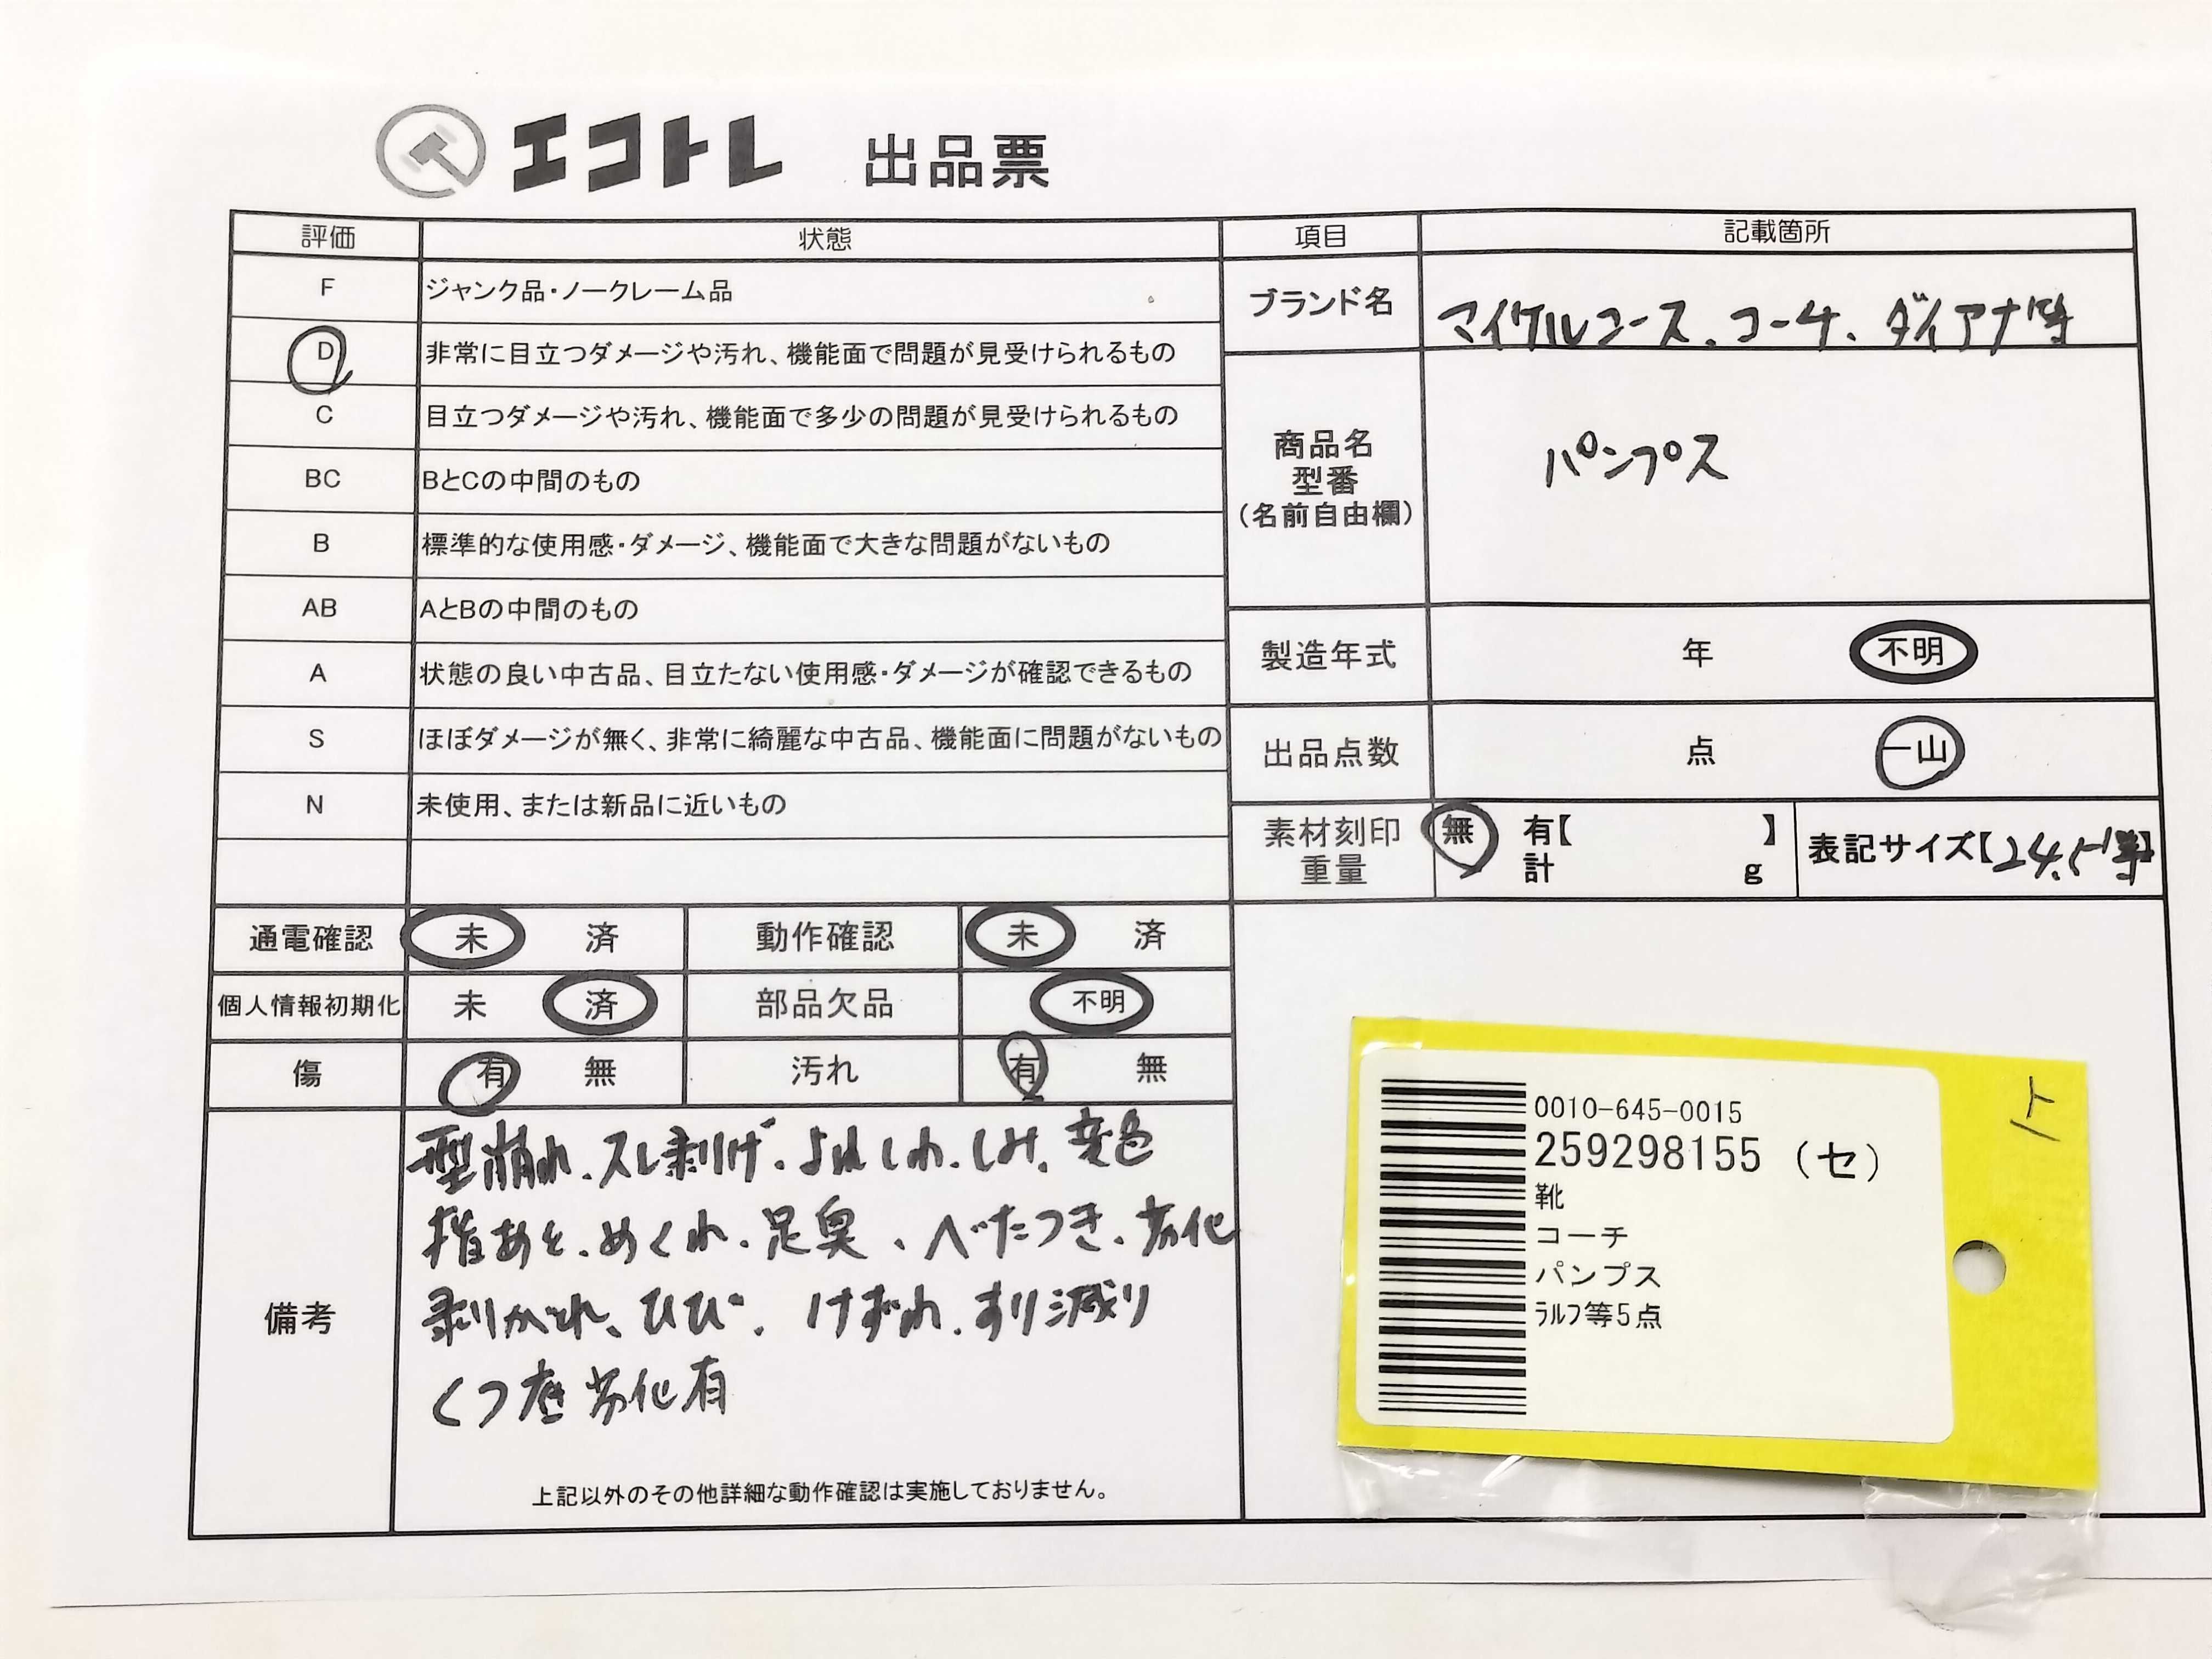 エコトレ 出品票
評価 状態 項目 記載箇所
F ジャンク品・ノークレーム品
D 非常に目立つダメージや汚れ、機能面で問題が見受けられるもの
C 目立つダメージや汚れ、機能面で多少の問題が見受けられるもの
BC BとCの中間のもの
B 標準的な使用感・ダメージ、機能面で大きな問題がないもの
AB AとBの中間のもの
A 状態の良い中古品、目立たない使用感・ダメージが確認できるもの
S ほぼダメージが無く、非常に綺麗な中古品、機能面に問題がないもの
N 未使用、または新品に近いもの
ブランド名 マイケルコース、コーチ、ダイアナ等
商品名
型番
(名前自由欄)
パンプス
製造年式 年 不明
出品点数 点 一山
素材刻印 無 有【 】
重量 計 g
表記サイズ【24.5等】
通電確認 未 済 動作確認 未 済
個人情報初期化 未 済 部品欠品 不明
傷 有 無 汚れ 有 無
備考
型崩れ、スレ剥げ、よれしわ、しみ、変色
指あと、めくれ、足臭、べたつき、劣化
剥がれ、ひび、けずれ、すり減り
くつ底劣化有
上記以外のその他詳細な動作確認は実施しておりません。
0010-645-0015
259298155 (セ)
靴
コーチ
パンプス
ﾗﾙﾌ等5点